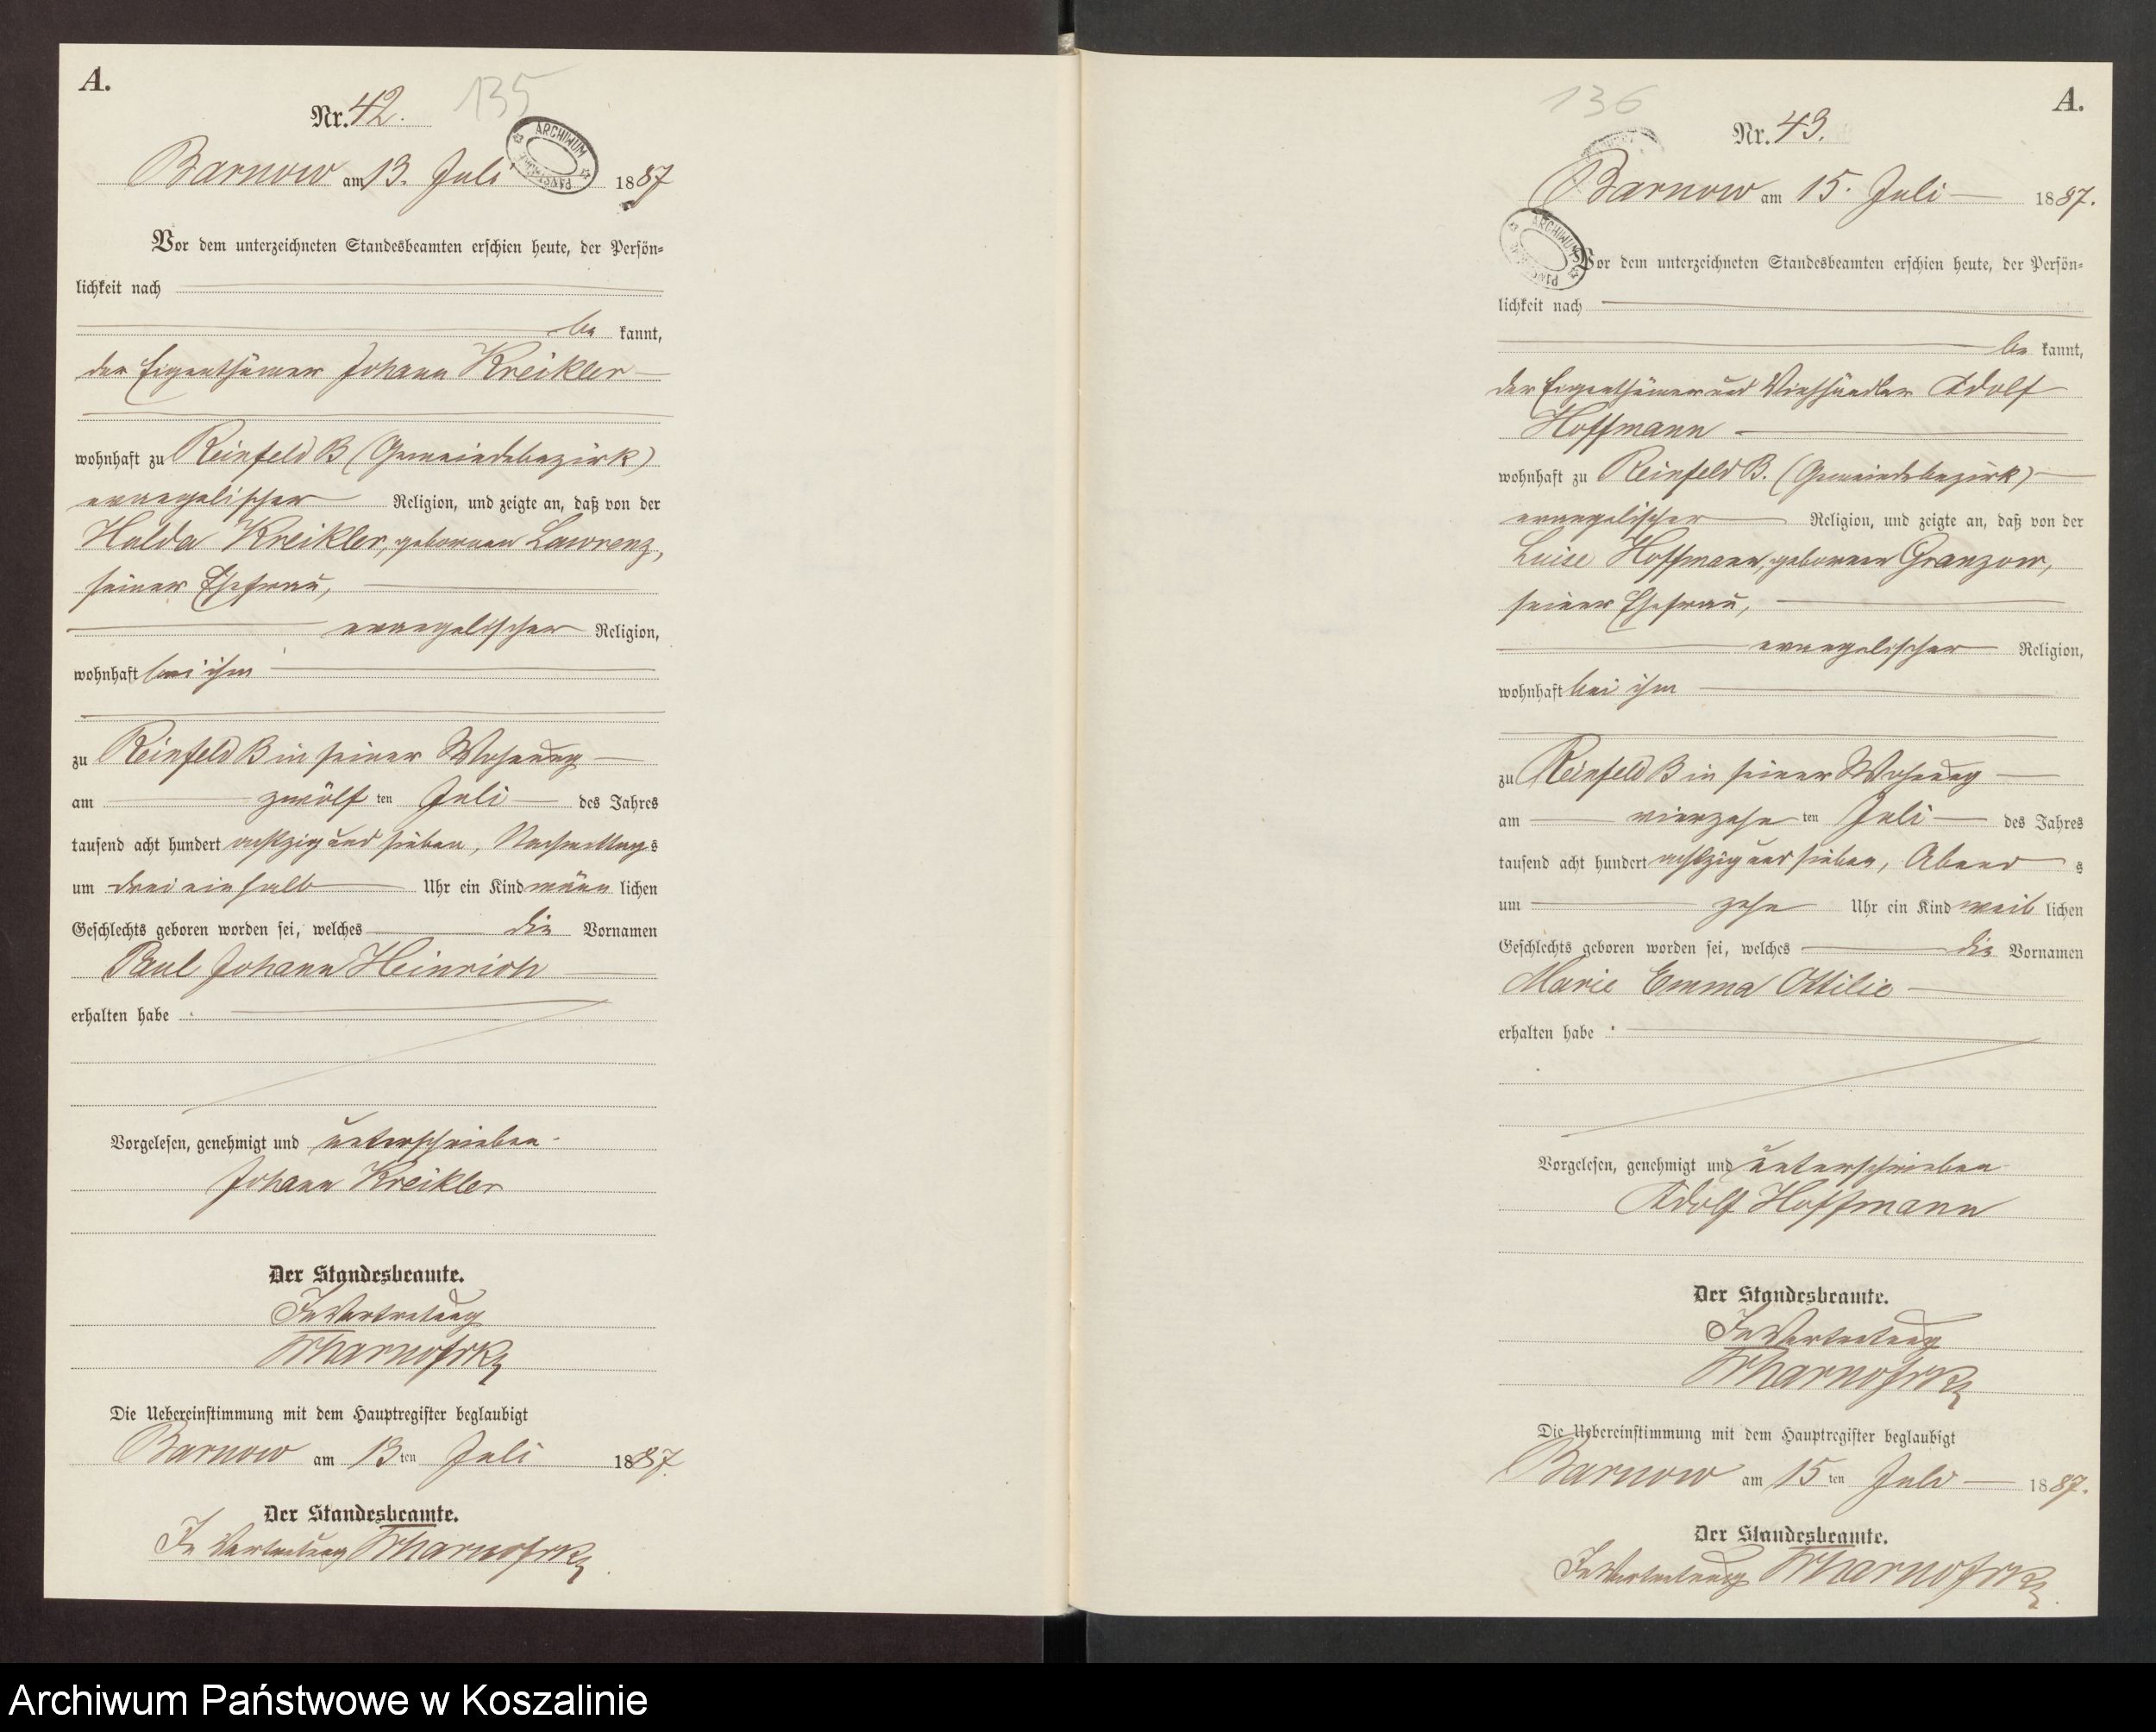 A.
Nr. 42.
135
ARCHIWUM
Barnow am 13. Juli 1887
Vor dem unterzeichneten Standesbeamten erschien heute, der Persön-
lichkeit nach
be kannt,
der Eigenthümer Johann Kreikler
wohnhaft zu Reinfeld B (Gemeindebezirk)
evangelischer Religion, und zeigte an, daß von der
Hulda Kreikler, geborenen Lawrenz,
seiner Ehefrau,
evangelischer Religion,
wohnhaft bei ihm
zu Reinfeld B in seiner Wohnung
am zwölf ten Juli des Jahres
tausend acht hundert achtzig und sieben, Nachmittags
um drei ein halb Uhr ein Kind männ lichen
Geschlechts geboren worden sei, welches die Vornamen
Paul Johann Heinrich
erhalten habe .
Vorgelesen, genehmigt und unterschrieben.
Johann Kreikler
Der Standesbeamte.
In Vertretung
Die Uebereinstimmung mit dem Hauptregister beglaubigt
Barnow am 13ten Juli 1887.
Der Standesbeamte.
In Vertretung
136
A.
Nr. 43.
Barnow am 15. Juli 1887.
ARCHIWUM
Vor dem unterzeichneten Standesbeamten erschien heute, der Persön-
lichkeit nach
be kannt,
der Eigenthümer und Viehhändler Adolf
Hoffmann
wohnhaft zu Reinfeld B. (Gemeindebezirk)
evangelischer Religion, und zeigte an, daß von der
Luise Hoffmann, geborenen Granzow,
seiner Ehefrau,
evangelischer Religion,
wohnhaft bei ihm
zu Reinfeld B in seiner Wohnung
am vierzehn ten Juli des Jahres
tausend acht hundert achtzig und sieben, Abend s
um zehn Uhr ein Kind weib lichen
Geschlechts geboren worden sei, welches die Vornamen
Marie Emma Ottilie
erhalten habe .
Vorgelesen, genehmigt und unterschrieben
Adolf Hoffmann
Der Standesbeamte.
In Vertretung
Die Uebereinstimmung mit dem Hauptregister beglaubigt
Barnow am 15ten Juli 1887.
Der Standesbeamte.
In Vertretung
Archiwum Państwowe w Koszalinie